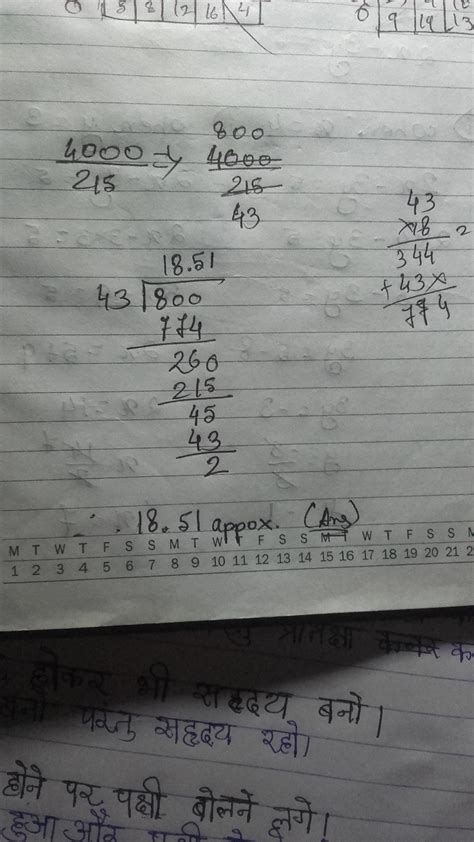 0 3 8 12 16 4
0 9 19 13
4000/215 ⇒ 800
4000/215
43
43
×18 2
344
+43×
774
18.51
43 | 800
774
260
215
45
43
2
∴ 18.51 appox. (Ans)
M T W T F S S M T W T F S S M T W T F S S M
1 2 3 4 5 6 7 8 9 10 11 12 13 14 15 16 17 18 19 20 21 2
होकर भी सहृदय बनो।
बनो परंतु सहृदय रहो।
होने पर पक्षी बोलने लगे।
हुआ और